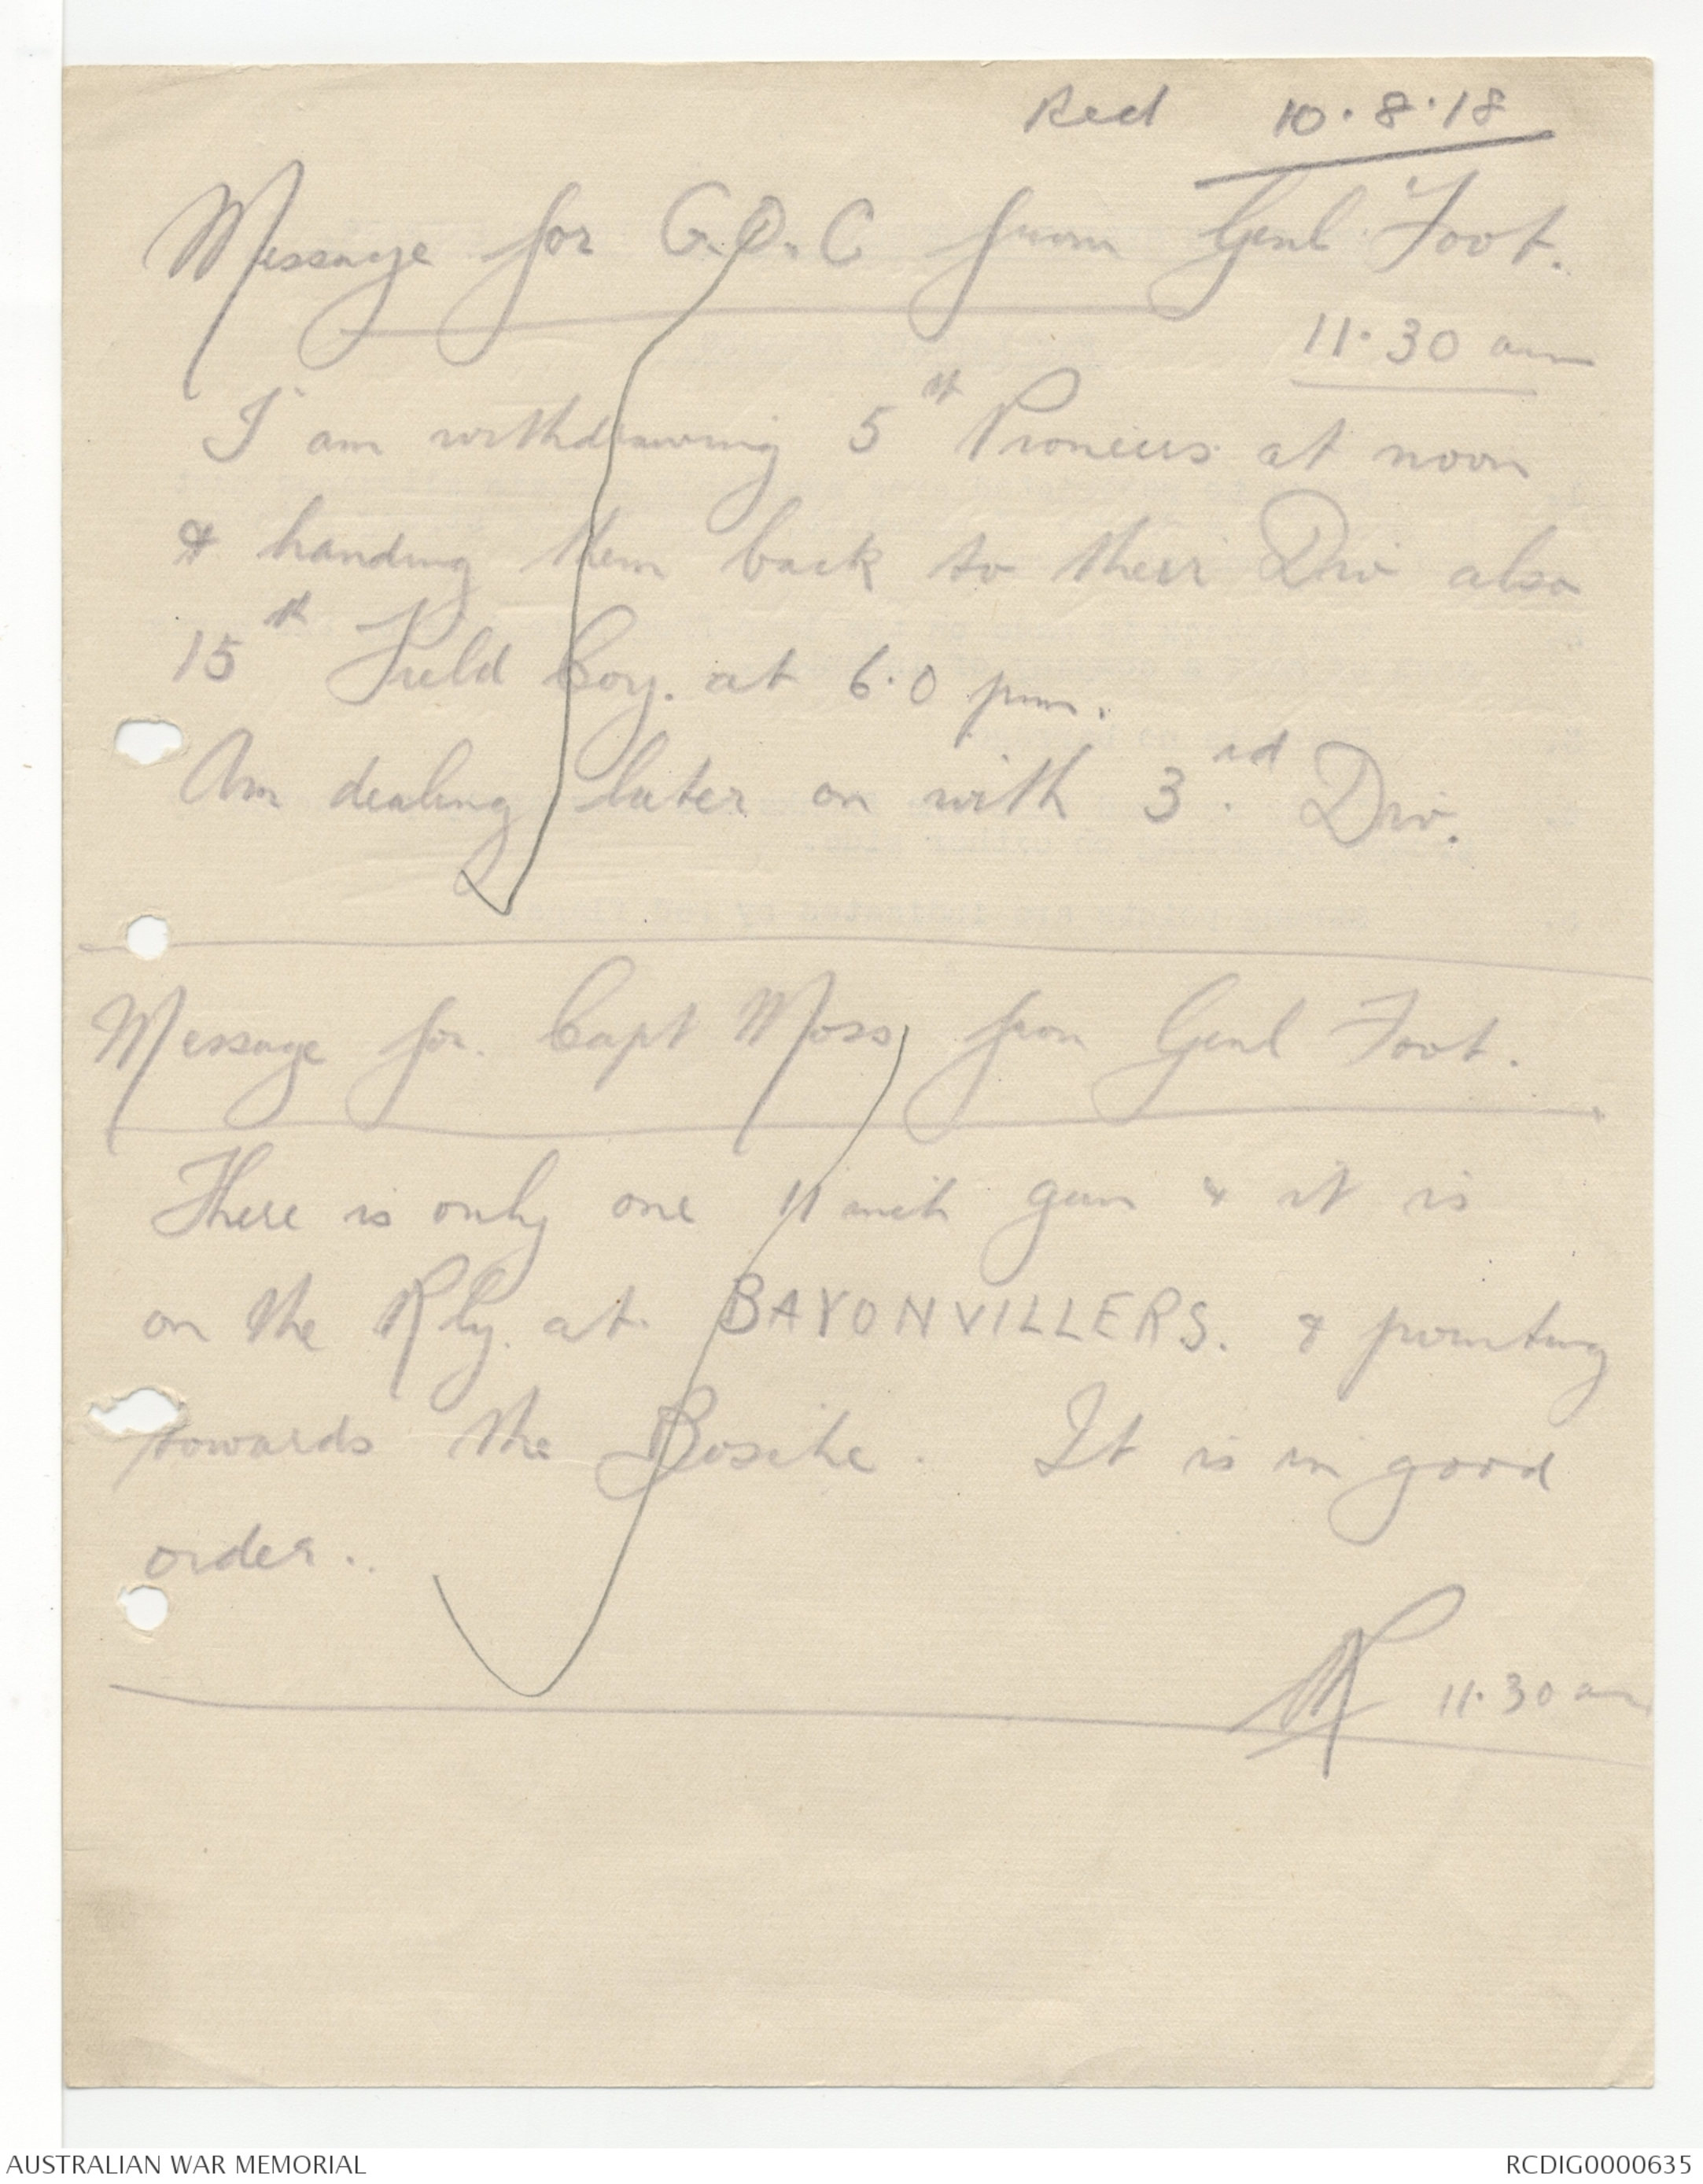 Recd 10.8.18
Message for G.O.C from Genl Foot.
11.30 am
I am withdrawing 5th Pioneers at noon
& handing them back to their Div also
15th Field Coy. at 6.0 pm.
Am dealing later on with 3rd Div.
Message for. Capt Moss from Genl Foot.
There is only one 11 inch gun & it is
on the Rly. at BAYONVILLERS. & pointing
towards the Bosche. It is in good
order.
11.30 am
AUSTRALIAN WAR MEMORIAL RCDIG0000635